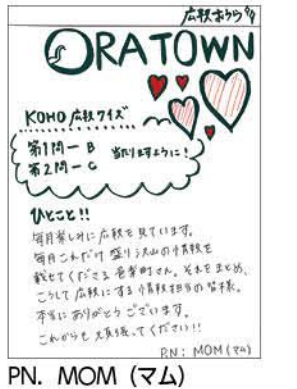 広報おうら
ORATOWN
KOHO 広報クイズ
第1問ー B
第2問ー C
当たりますように!
ひとこと!!
毎月楽しみに広報を見ています。
毎月これだけ盛り沢山の情報を
載せてくださる邑楽町さん。それをまとめ、
こうして広報にする情報担当の皆様。
本当にありがとうございます。
これからも頑張ってください!!
P.N: MOM (マム)
PN. MOM (マム)